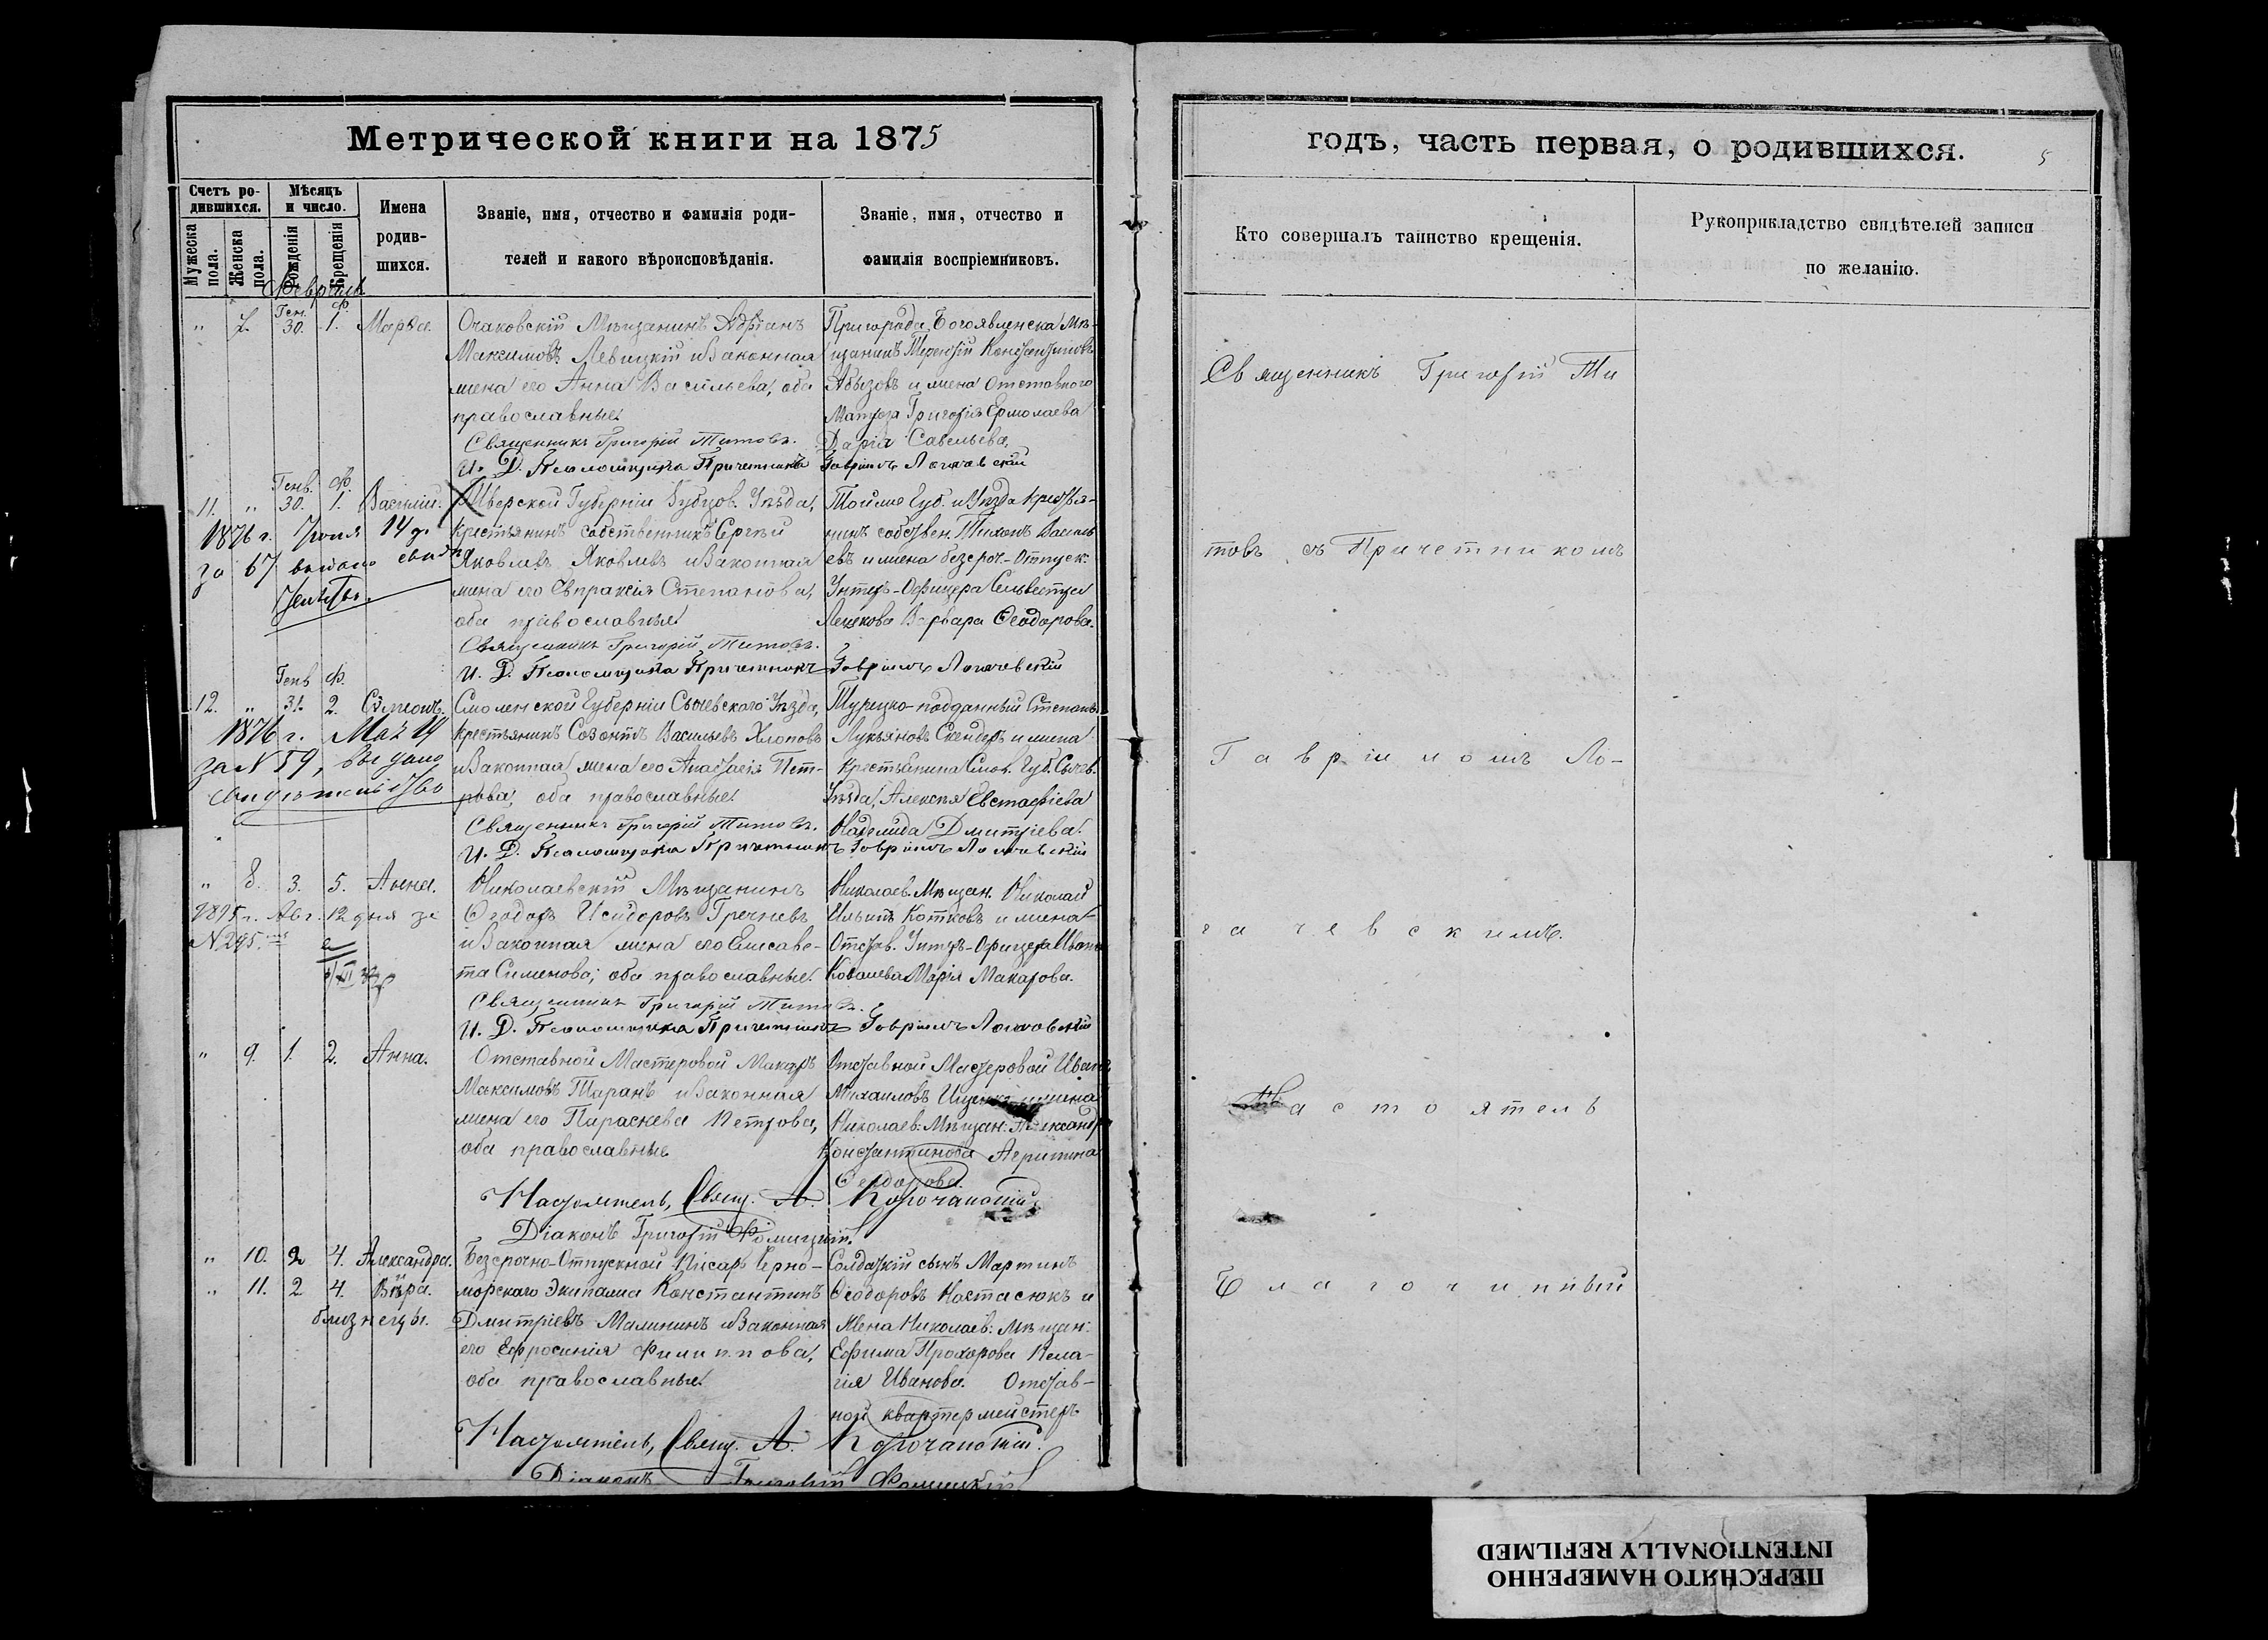 Метрической книги на 1875
Счетъ ро-
дившихся.
Мужеска пола.
Женска пола.
Мѣсяцъ
и число.
Рожденія
Крещенія
Имена
родив-
шихся.
Званіе, имя, отчество и фамилія роди-
телей и какого вѣроисповѣданія.
Званіе, имя, отчество и
фамилія воспріемниковъ.
Февраль
Ген. Ф.
" 7. 30. 1. Марѳа. Очаковскій Мѣщанинъ Адріанъ
Максимовъ Левицкій и законная
жена его Анна Васильева, оба
православные.
Пригорода Богоявленска Мѣ-
щанинъ Терентій Константиновъ
Абызовъ и жена отставного
Матроза Григорія Ермолаева
Дарія Савельева.
Священникъ Григорій Титовъ.
И. Д. Псаломщика Причетникъ Гавріилъ Логачевскій
Генв. Ф.
11. " 30. 1. Василій. Тверской Губерніи Зубцов. Уѣзда,
крестьянинъ собственникъ Сергѣй
Яковлевъ Яковлевъ и законная
жена его Евпраксія Степанова,
оба православные.
Тойже Губ. и Уѣзда крестья-
нинъ собствен. Тихонъ Василь
евъ и жена безсроч.-отпуск.
Унтеръ-Офицера Сильвестра
Варвара Ѳеодорова.
1876 г. Іюня 14 д.
за 67 выдано свид
Священникъ Григорій Титовъ.
И. Д. Псаломщика Причетникъ Гавріилъ Логачевскій
Генв Ф.
12. " 31. 2. Сѵмеонъ. Смоленской Губерніи Сычевскаго Уѣзда,
крестьянинъ Созонтъ Васильевъ Хлоповъ
и законная жена его Анастасія Пет-
рова, оба православные.
Турецко-подданный Степанъ
Лукьяновъ Скендеръ и жена
крестьянина Смол. Губ. Сычев.
Уѣзда, Алексѣя Евстафіева
Надежда Дмитріева.
1876 г. Мая 14
за N 59, выдано
свидѣтельство
Священникъ Григорій Титовъ.
И. Д. Псаломщика Причетникъ Гавріилъ Логачевскій
" 8. 3. 5. Анна. Николаевскій Мѣщанинъ
Ѳеодоръ Исидоровъ Гречневъ
и законная жена его Елисаве-
та Симонова, оба православные.
Николаев. Мѣщан. Николай
Ильинъ Котковъ и жена
Отстав. Унтеръ-Офицера Ивана
Ковалева Марія Макарова.
1895 г. Авг. 12 дня за
N 295.
Священникъ Григорій Титовъ.
И. Д. Псаломщика Причетникъ Гавріилъ Логачевскій
" 9. 1. 2. Анна. Отставной Мастеровой Макаръ
Максимовъ Таранъ и законная
жена его Параскева Петрова,
оба православные
Отставной Мастеровой Иванъ
Михаиловъ и жена
Николаев: Мѣщан: Александра
Константинова Агрипина
Ѳеодорова.
Настоятель, Свящ. А. Корочанскій
Діаконъ Григорій Фомицкій.
" 10. 2 4. Александра.
" 11. 2 4. Вѣра.
близнецы.
Безсрочно-отпускной писарь Черно-
морскаго Экипажа Константинъ
Дмитріевъ Малининъ и законная
его Ефросинія Филиппова,
оба православные.
Солдатскій сынъ Мартинъ
Ѳеодоровъ Костасюкъ и
жена Николаев: Мѣщан:
Ефима Прохорова Пела-
гія Иванова. Отстав-
ной квартермейстеръ
Настоятель, Свящ. А. Корочанскій.
Діаконъ Григорій Фомицкій
годъ, часть первая, о родившихся.
5
Кто совершалъ таинство крещенія.
Рукоприкладство свидѣтелей записи
по желанію.
Священникъ Григорій Ти
товъ съ Причетникомъ
Гавріиломъ Ло-
гачевскимъ.
Настоятель
Благочинный
ПЕРЕСНЯТО НАМЕРЕННО
INTENTIONALLY REFILMED